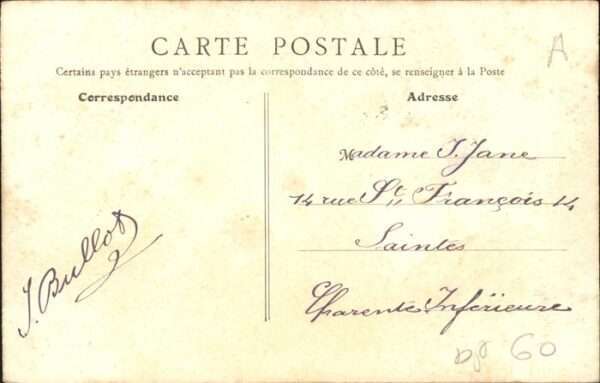 CARTE POSTALE
A
Certains pays étrangers n'acceptant pas la correspondance de ce côté, se renseigner à la Poste
Correspondance
Adresse
Madame J. Jane
14 rue St François 14
Saintes
Charente Inférieure
J. Bullot
60